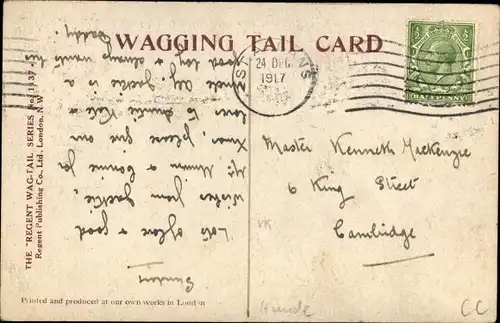 WAGGING TAIL CARD
24 DEC
1917
HALFPENNY
Sunday
Lots of love & good
wishes from Jackie,
a for
Xmas, please give our
love to Auntie Kate &
Uncle Jackie is a
good boy & always wants his
Daddy.
Master Kenneth Mackenzie
6 King Street
Cambridge
THE "REGENT WAG-TAIL SERIES No. 1137
Regent Publishing Co. Ltd. London, N.W.
Printed and produced at our own works in London
VK
Hunde
CC